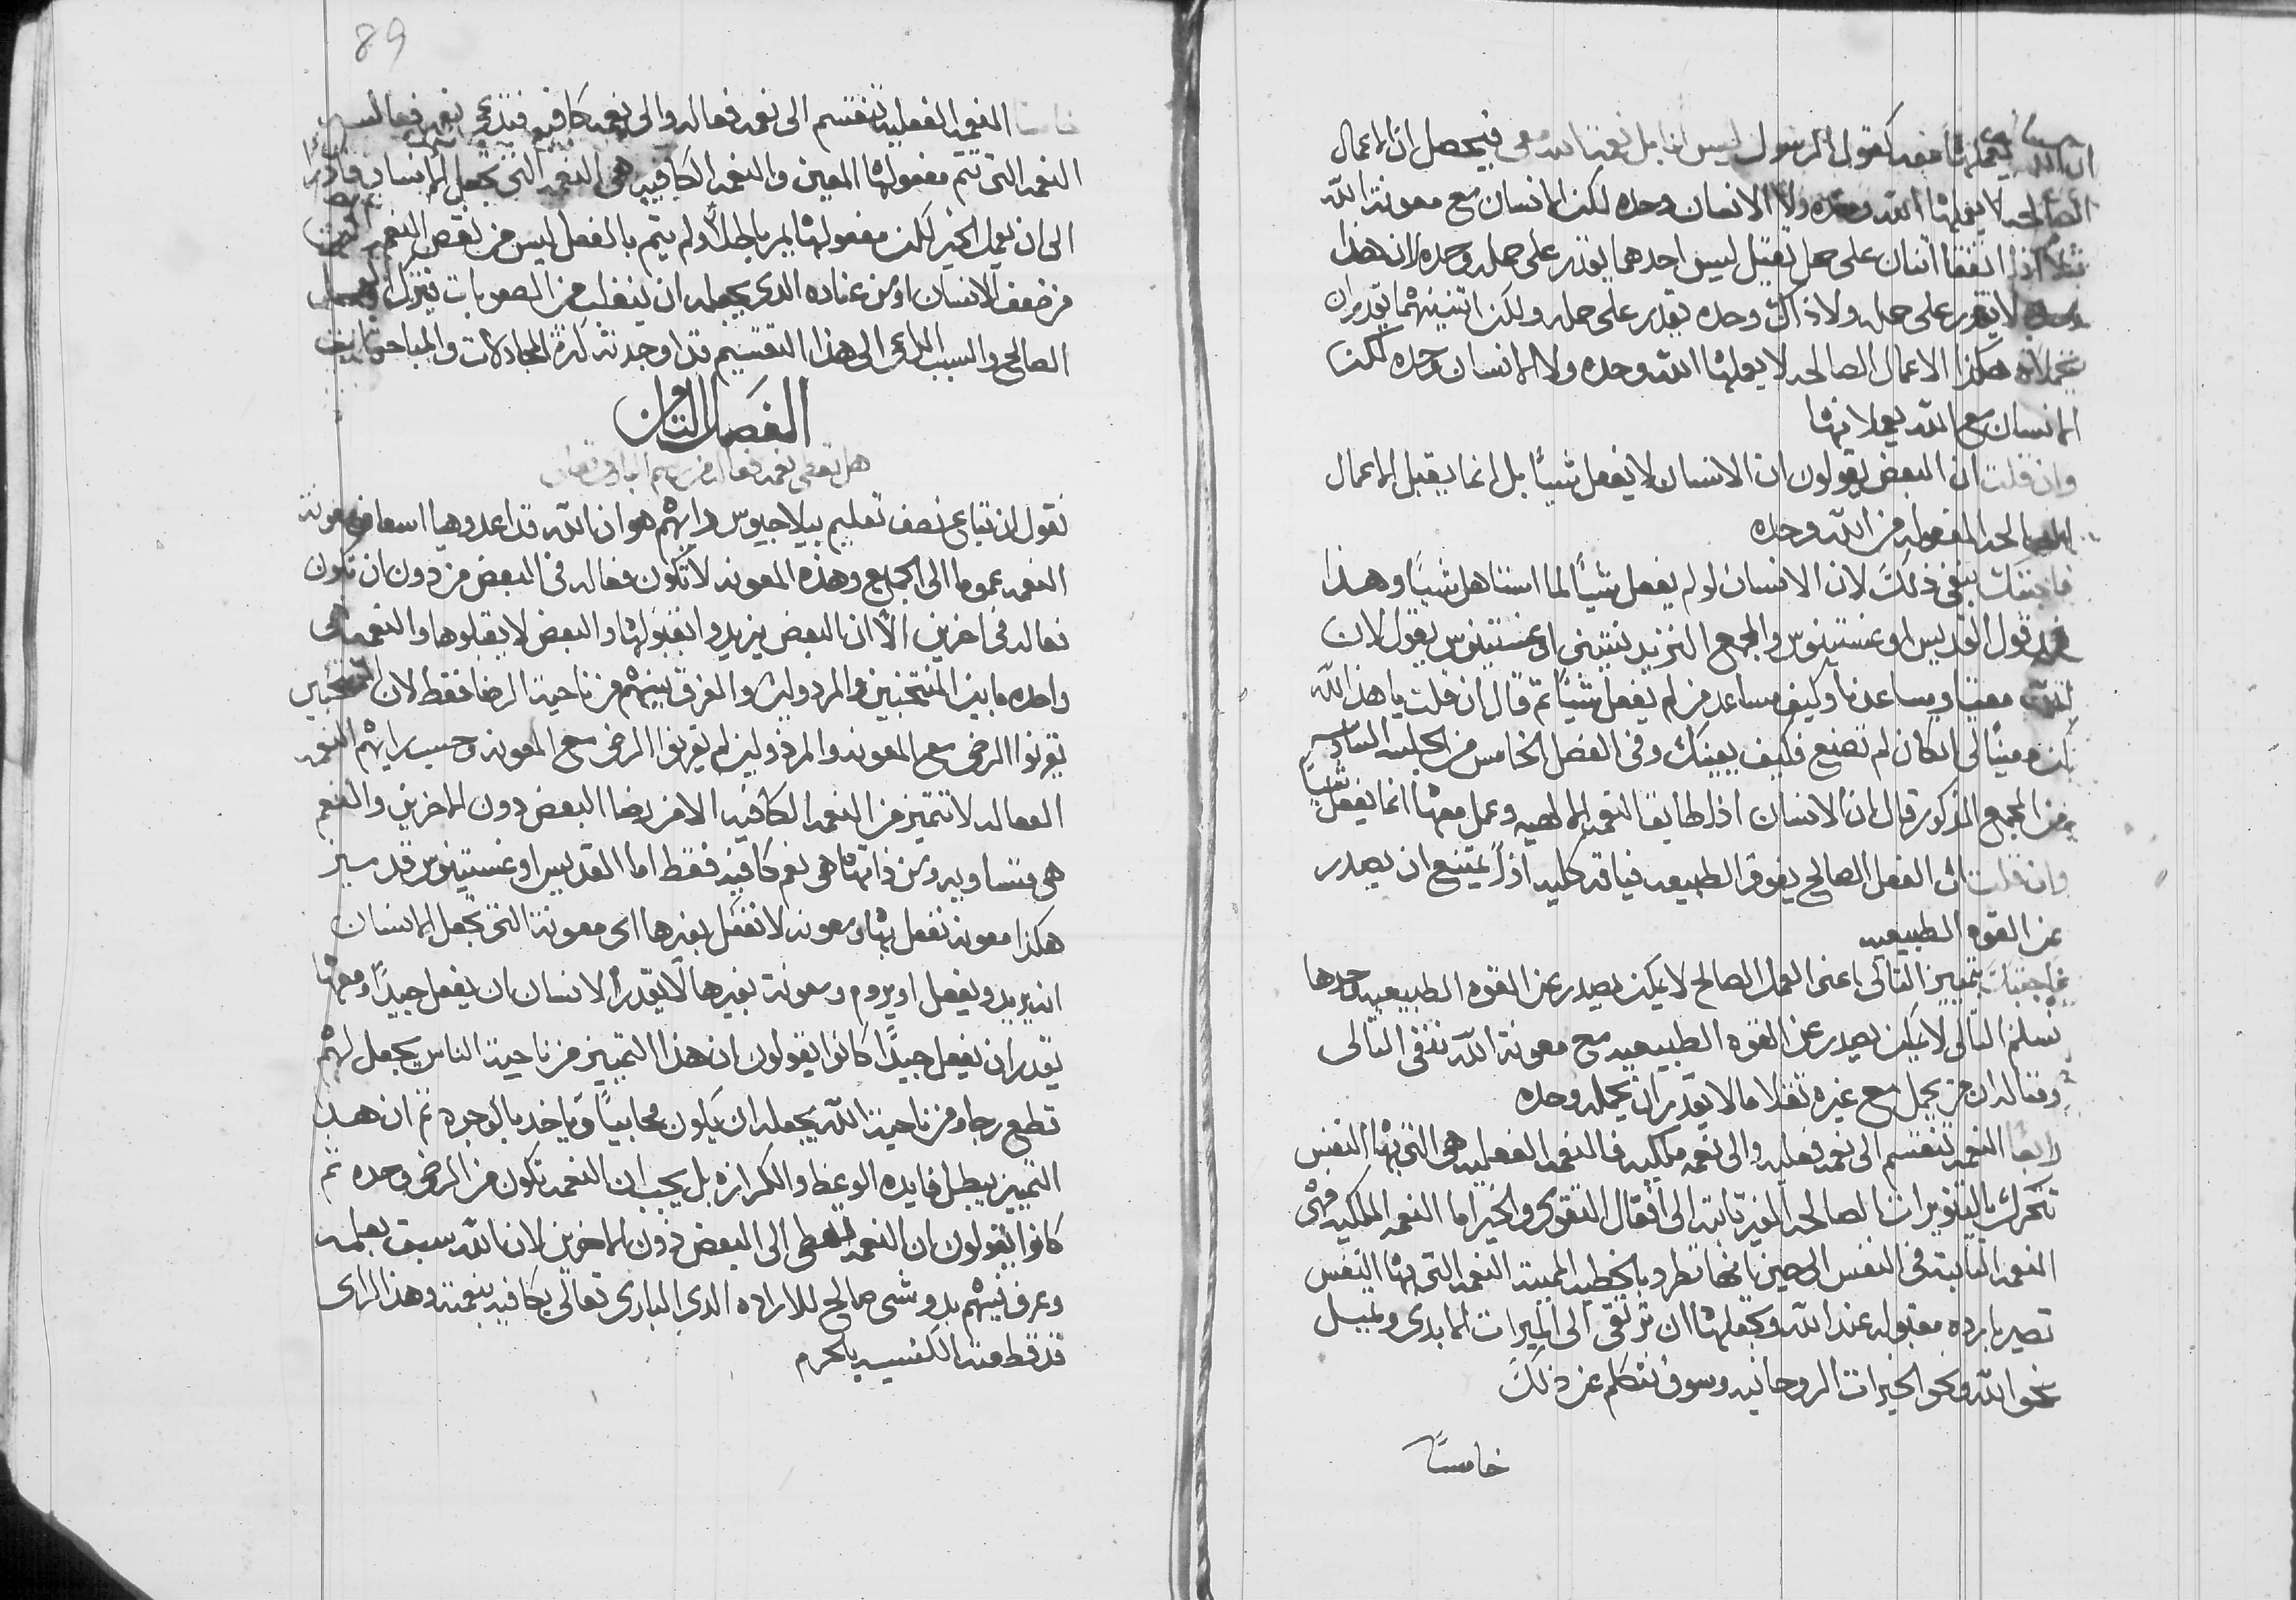 ان الله يعملها معه كقول الرسول ليس انا بل نعمة الله معي فيحصل ان الاعمال
الصالحه لا يفعلها الله وحده ولا الانسان وحده لكن الانسان مع معونة الله
مثلا اذا اتفقا اتنان على حمل تقيل ليس احدهما يقدر على حمله وحده لان هذا
وحده لا يقدر على حمله ولا ذاك وحده يقدر على حمله ولكن اتنينهما يقدران
يحملانه هكذا الاعمال الصالحه لا يعملها الله وحده ولا الانسان وحده لكن
الانسان مع الله يعملانها
وان قلت ان البعض يقولون ان الانسان لا يفعل شيئًا بل انما يقبل الاعمال
الصالحه المفعوله من الله وحده
فاجبتك بنفي ذلك لان الانسان لو لم يفعل شيئًا لما استاهل شيئًا وهذا
ضد قول القديس اوغستينوس والمجمع التريدنتيني اوغستينوس يقول لان
الله معيننا ويساعدنا وكيف يساعد من لم يفعل شيئًا تم قال ان قلت يا هذا لله
كن معينًا لي ان كان لم تصنع فكيف يعينك وفي الفصل الخامس من الجلسه السادسه
من المجمع المذكور قال ان الانسان اذا طابق النعمه الالهيه وعمل معها انما يفعل شيئًا
وان قلت ان الفعل الصالح يفوق الطبيعه فياقه كليه اذًا يمتنع ان يصدر
عن القوه الطبيعيه
فاجبتك بتمييز التالي اعني العمل الصالح لا يمكن يصدر عن القوه الطبيعيه وحدها
نسلم التالي لا يمكن يصدر عن القوه الطبيعيه مع معونة الله ننفي التالي
ومتاله ان من يحمل مع غيره تقلا ما لا يقدر ان يحمله وحده
رابعًا النعمه تنقسم الى نعمه فعليه والى نعمه ملكيه فالنعمه الفعليه هي التي بها النفس
تتحرك بالتنويرات الصالحه الغير تابته الى افعال التقوى والخير اما النعمه الملكيه فهي
النعمه التابته في النفس الى حين انها تطرد بالخطيه المميته النعمه التي بها النفس
تصير باره مقبوله عند الله وتجعلها ان ترتقي الى الميرات الابدي وتميل
نحو الله ونحو الخيرات الروحانيه وسوف نتكلم عن ذلك
خامسًا
89
خامسًا النعمه الفعليه تنقسم الى نعمه فعاله والى نعمه كافيه فتدعى نعمه فعاله
النعمه التي تتم مفعولها المعين والنعمه الكافيه هي النعمه التي تجعل الانسان قادرًا
الى ان يعمل الخير لكن مفعولها يمر باطلًا ولم يتم بالفعل ليس من نقص النعمه لكن
من ضعف الانسان او من عناده الذي يجعله ان ينغلب من الصعوبات فيترك العمل
الصالح والسبب الداعي الى هذا التقسيم قد اوجدته كثرة المجادلات والمباحثات
الفصل التاني
هل تعطى نعمه فعاله من
نقول ان تباع نصف تعليم بيلاجيوس رايهم هو ان الله قد اعد وهيا اسعاف معونة
النعمه عموما الى الجميع وهذه المعونه لا تكون فعاله في البعض من دون ان تكون
فعاله في اخرين الّا ان البعض يريدوا يقبلوها والبعض لا يقبلوها والنعمه هي
واحده ما بين المنتخبين والمردولين والفرق بينهم من ناحية الرضا فقط لان المنتخبين
يقرنوا الرضى مع المعونه والمردولين لم يقرنوا الرضى مع المعونه وحسب رايهم النعمه
الفعاله لا تتميز من النعمه الكافيه الا من رضا البعض دون الاخرين والنعم
هي متساويه ومن ذاتها هي نعم كافيه فقط اما القديس اوغستينوس قد ميز
هكذا معونة نفعل بها ومعونه لا نفعل بغيرها اي معونة التي تجعل الانسان
انه يريد ويفعل او يروم ومعونة بغيرها لا يقدر الانسان ان يفعل جيدًا ومعها
يقدر ان يفعل جيدًا كانوا يقولون ان هذا التمييز من ناحية الناس يجعل لهم
قطع رجا ومن ناحية الله يجعله ان يكون محابيًا وياخذ بالوجوه تم ان هذا
التمييز يبطل فايدة الوعظ والكرازه بل يجب ان النعمه تكون من الرضى وحده تم
كانوا يقولون ان النعمه تعطى الى البعض دون الاخرين لان الله سبق بعلمه
وعرف فيهم بدو شي صالح للاراده الذي الباري تعالى يكافيه بنعمته وهذا الراي
قد قطعته الكنيسه بالحرم